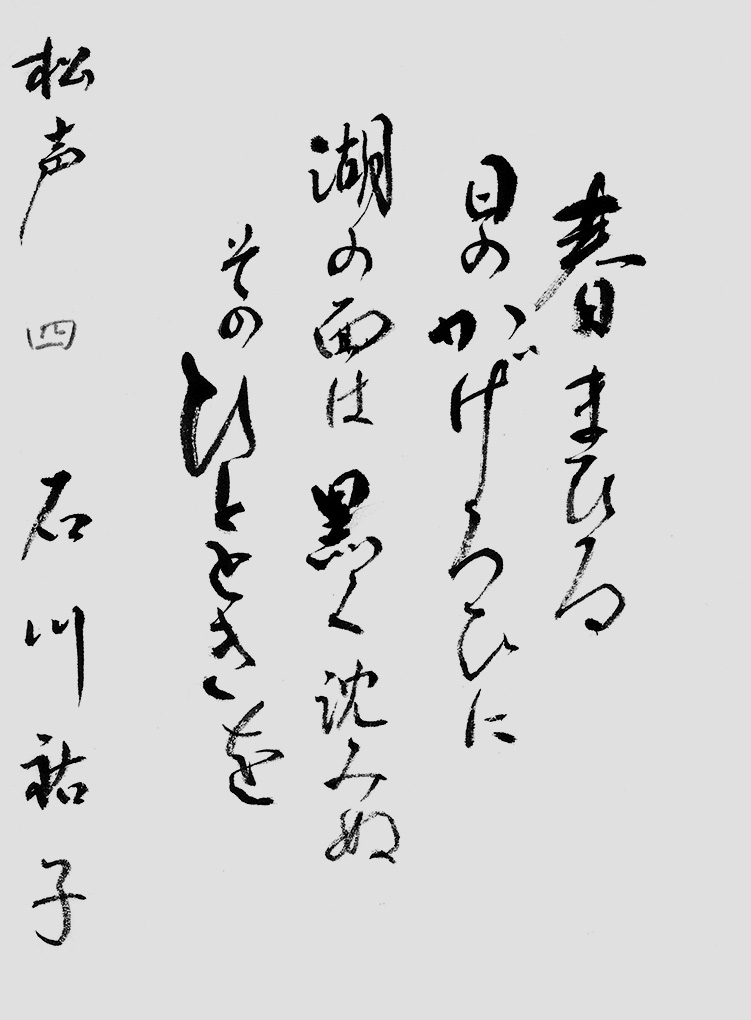 春まひる
日のかげろひに
湖の面は黒く沈みぬ
そのひとときを
松声 四 石川祐子